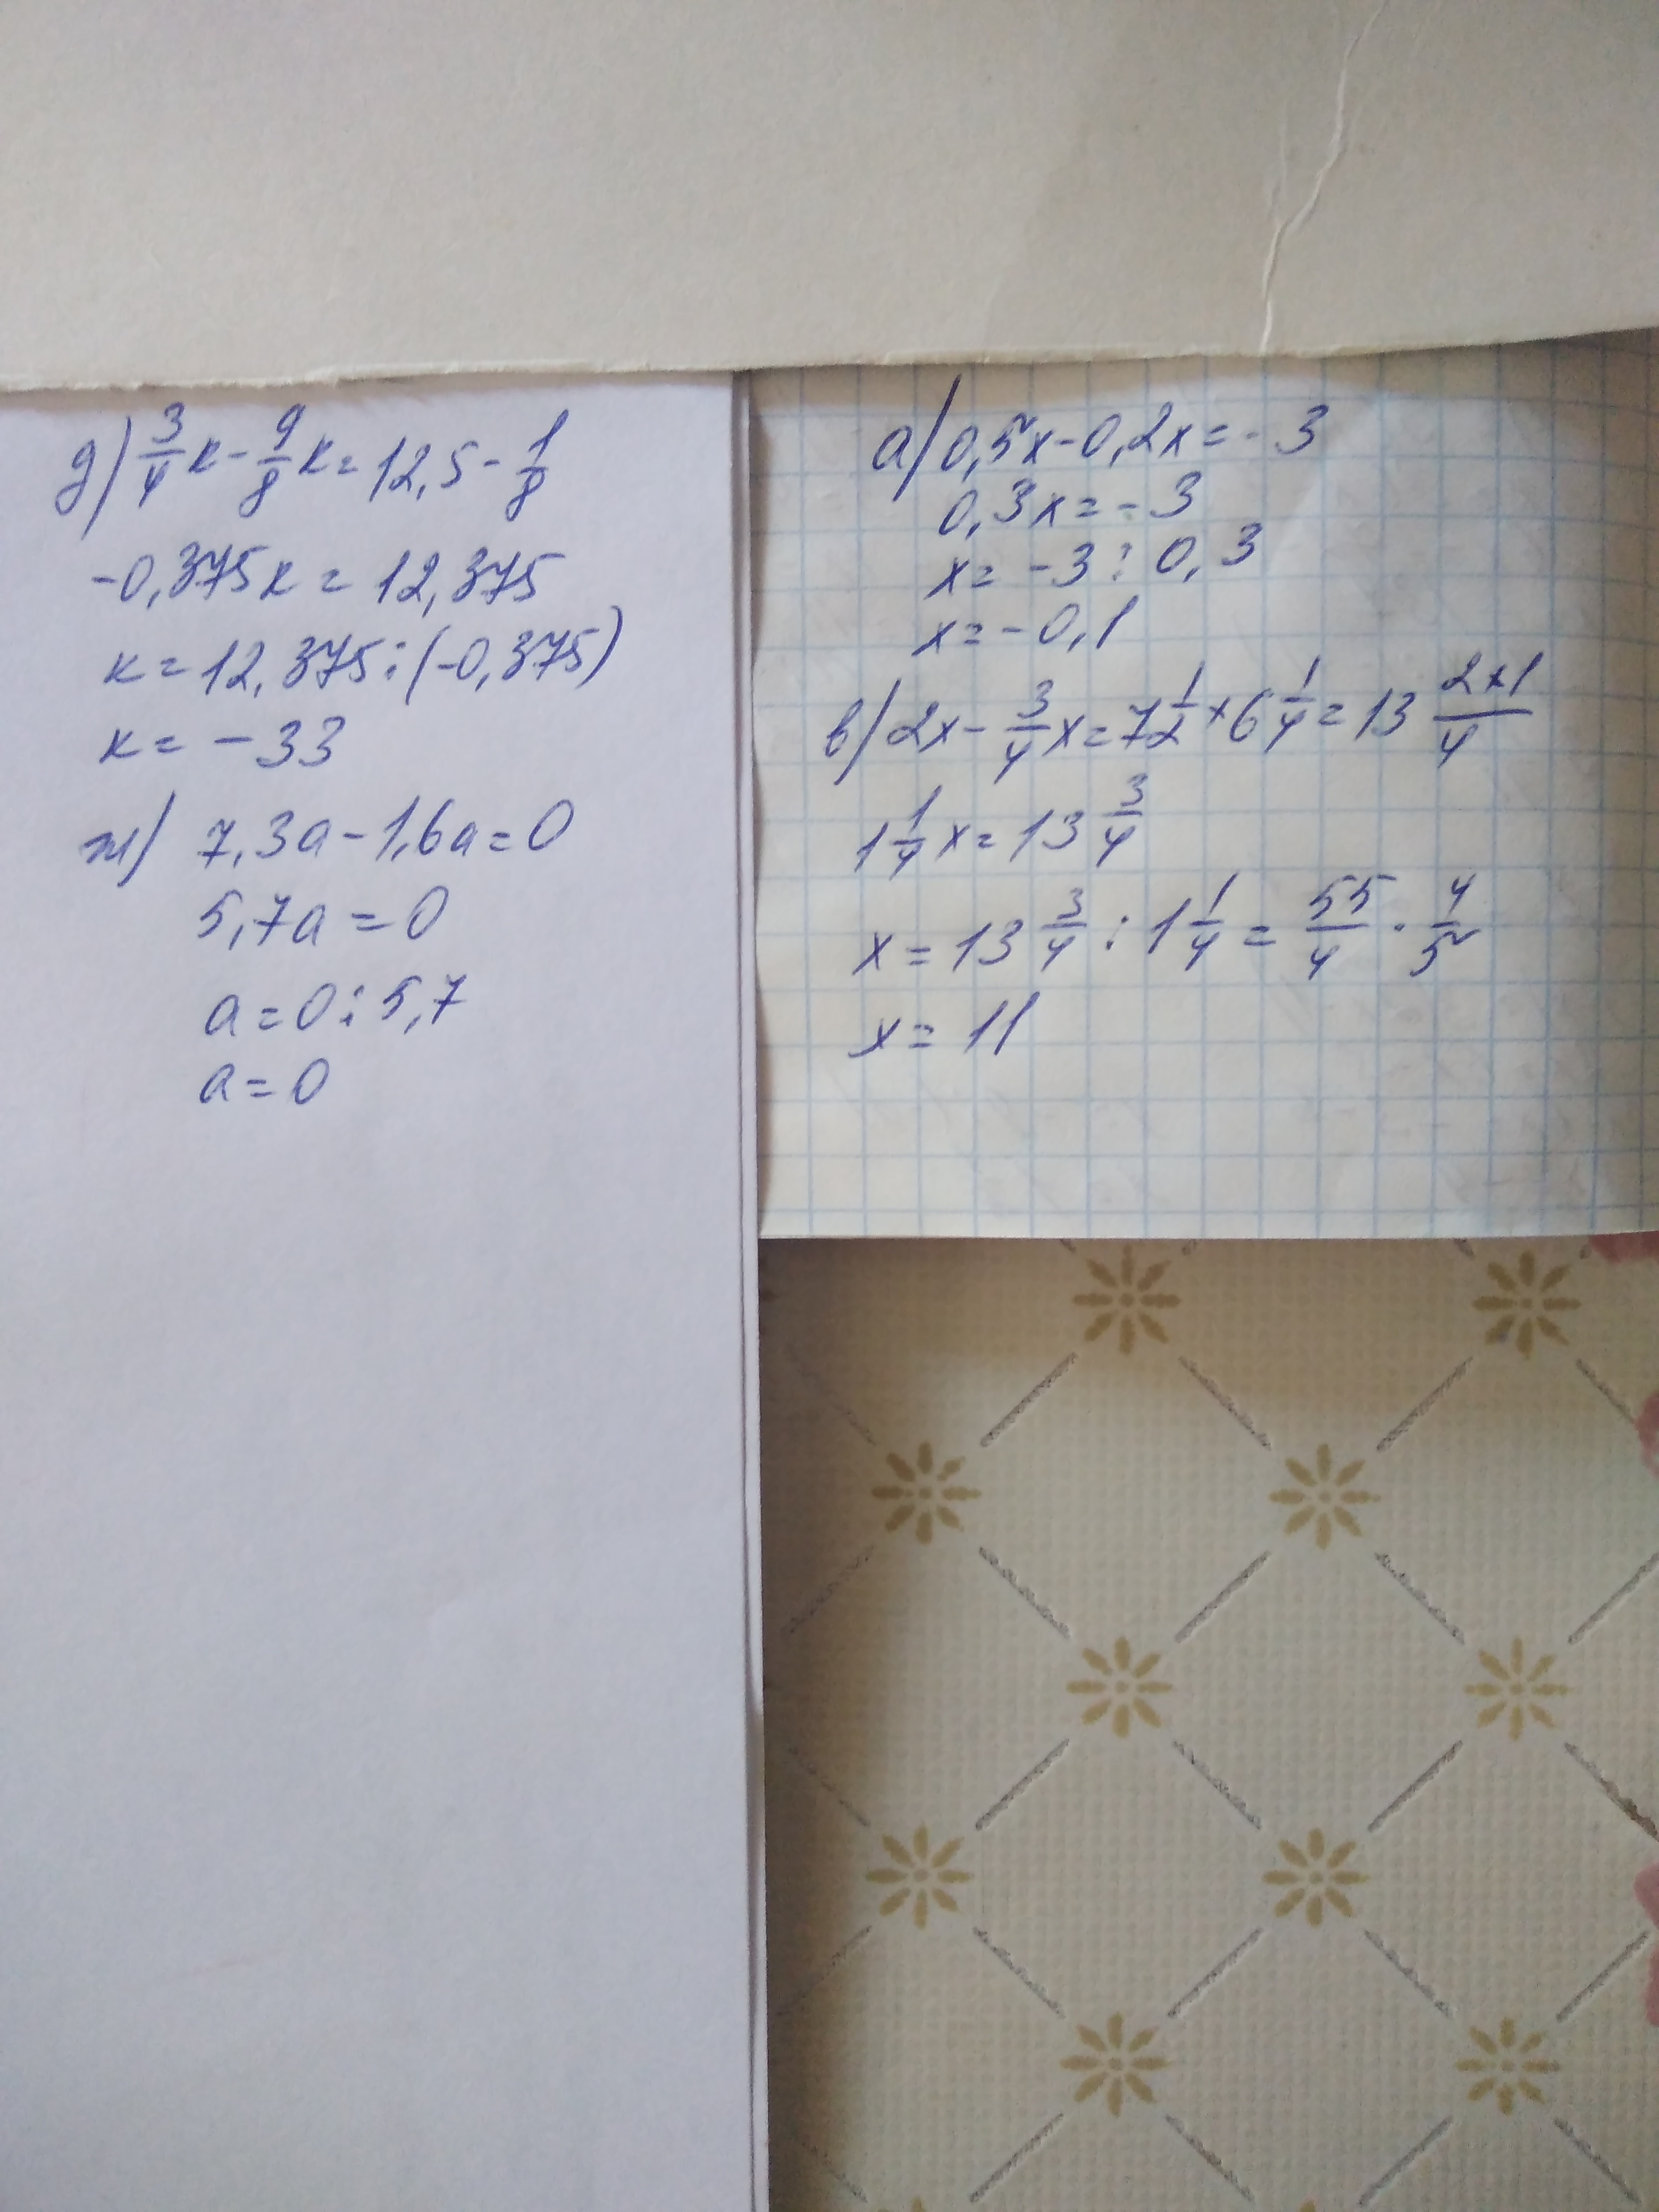 д) 3/4 к - 9/8 к = 12,5 - 1/8
-0,375к = 12,375
к = 12,375 : (-0,375)
к = -33
ж) 7,3а - 1,6а = 0
5,7а = 0
а = 0 : 5,7
а = 0
а) 0,5х - 0,2х = -3
0,3х = -3
х = -3 : 0,3
х = -0,1
в) 2х - 3/4 х = 7 1/2 + 6 1/4 = 13 2+1/4
1 1/4 х = 13 3/4
х = 13 3/4 : 1 1/4 = 55/4 · 4/5
х = 11